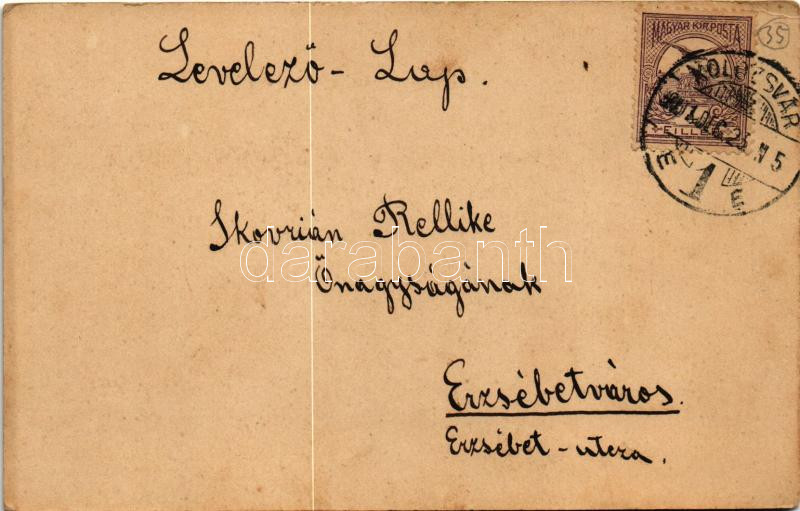 Levelező-Lap.
MAGYAR KIR. POSTA
35
KOLOZSVÁR
1
Skovrián Rellike
Őnagyságának
darabanth
Erzsébetváros.
Erzsébet-utcza.